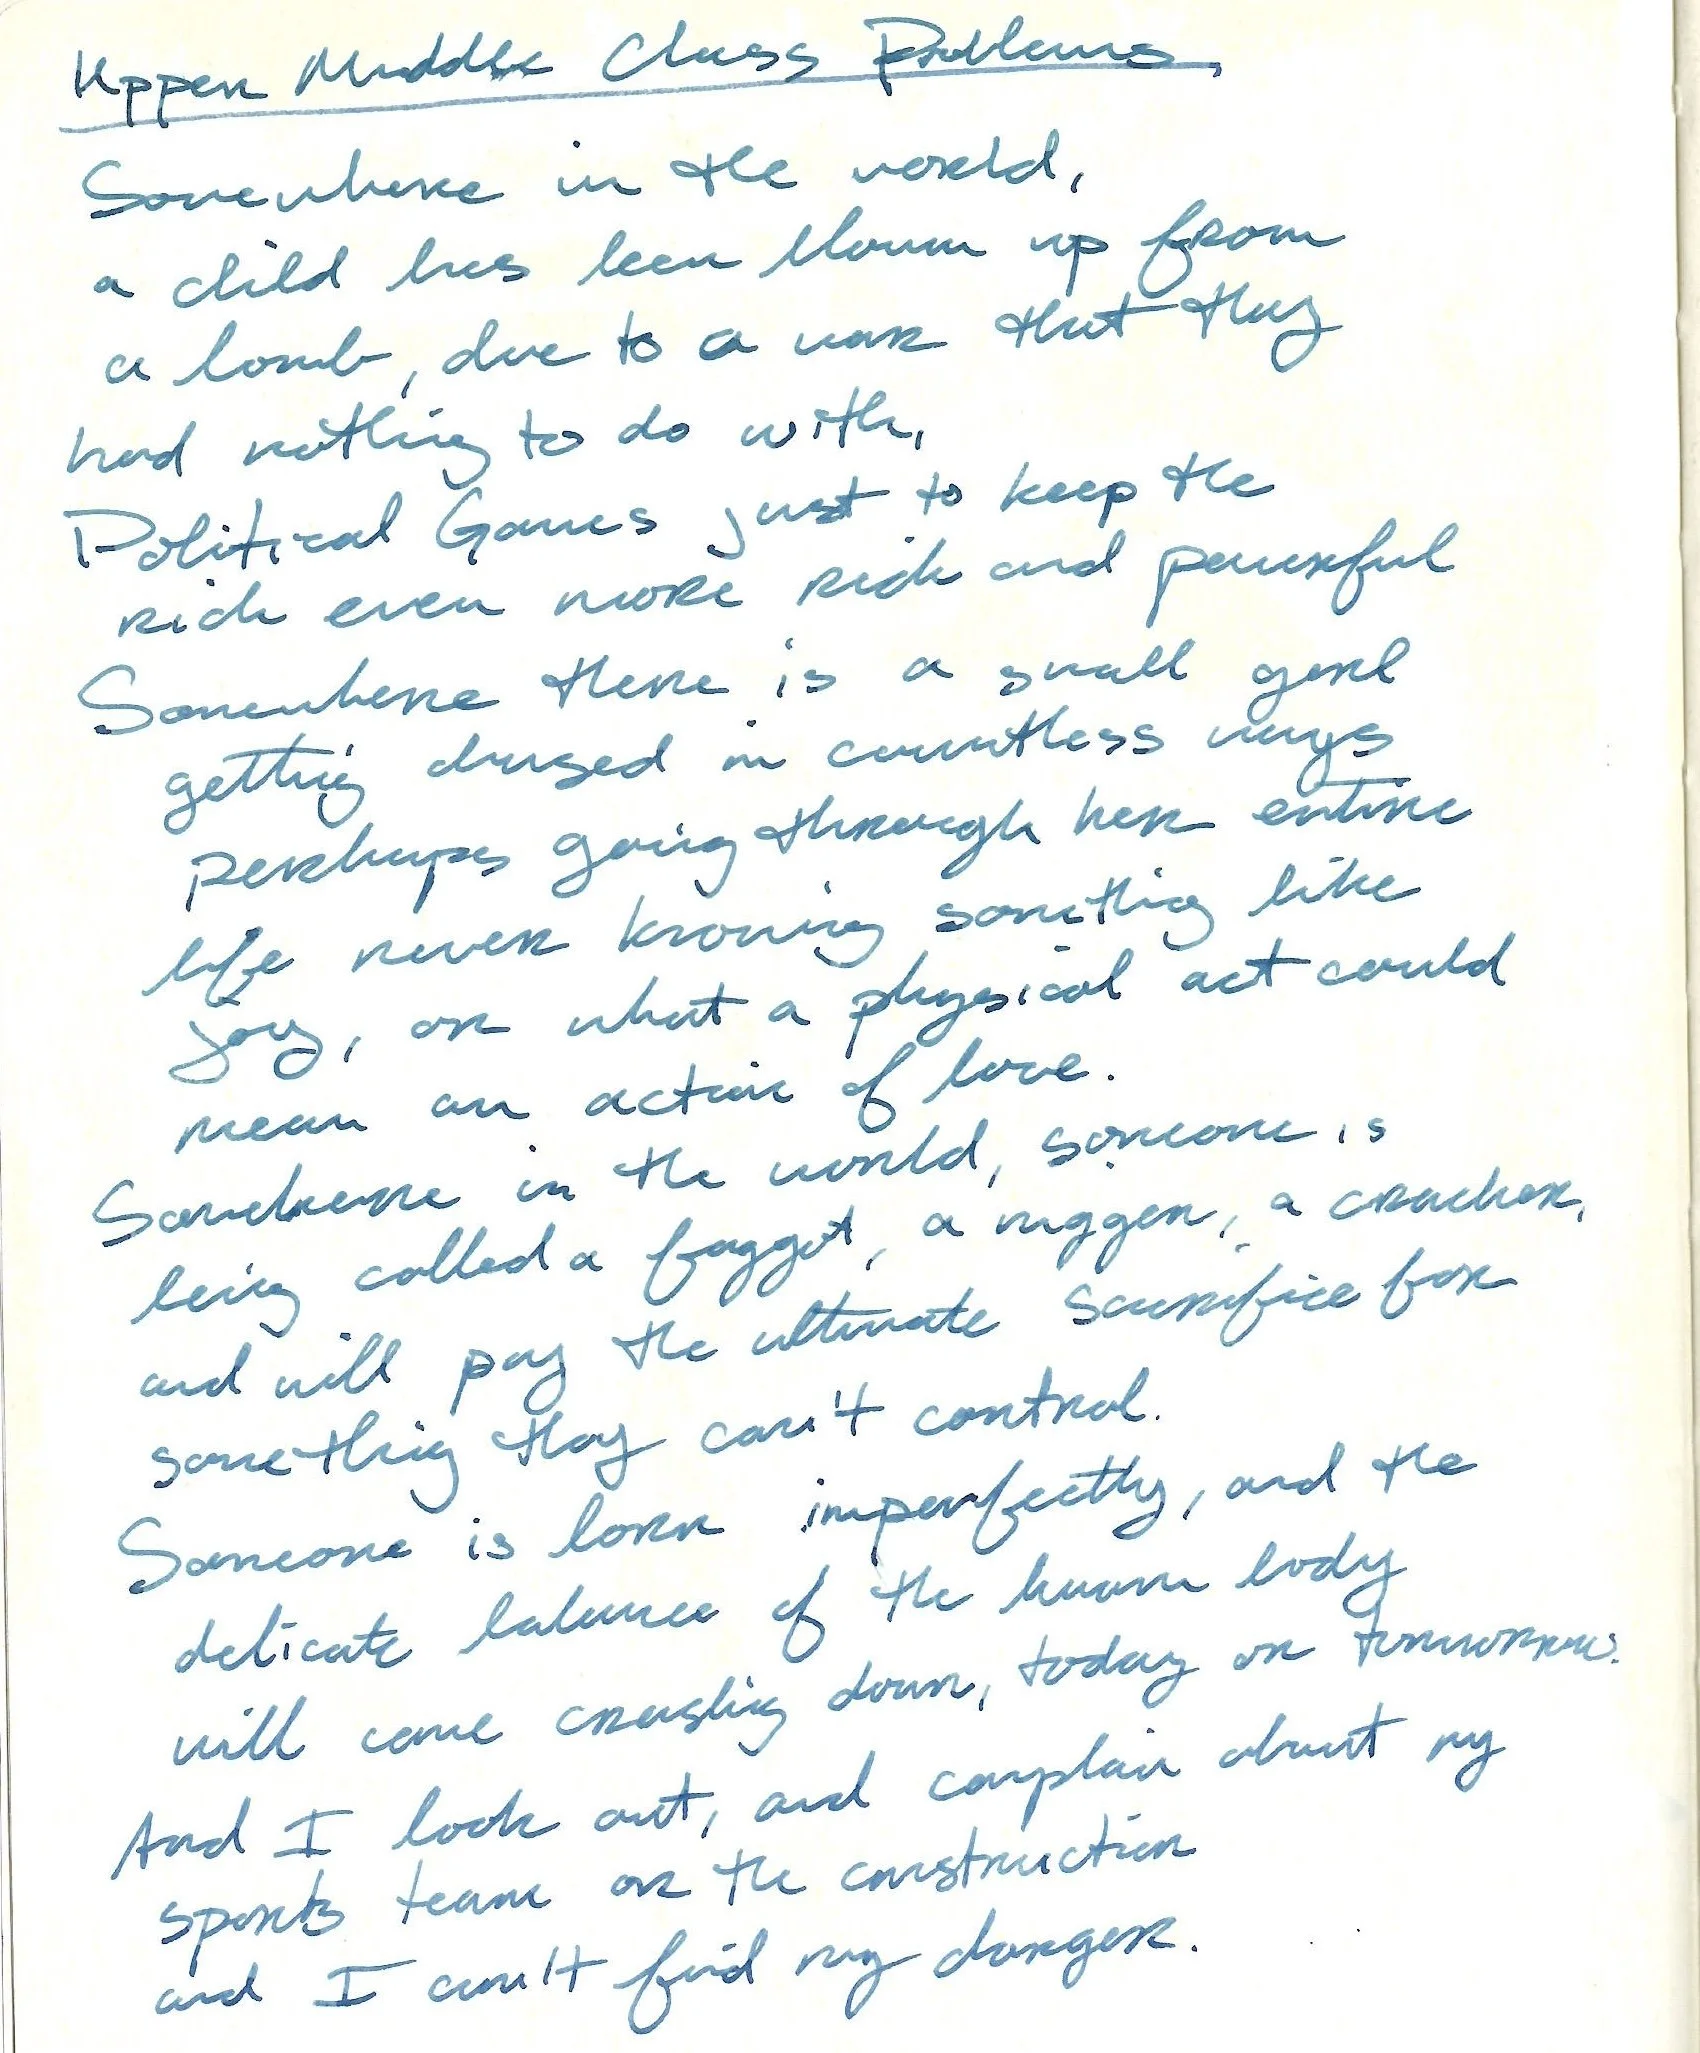 Upper Middle Class Problems.
Somewhere in the world,
a child has been blown up from
a bomb, due to a war that they
had nothing to do with,
Political Games just to keep the
rich even more rich and powerful
Somewhere there is a small girl
getting abused in countless ways
perhaps going through her entire
life never knowing something like
joy, or what a physical act could
mean an action of love.
Somewhere in the world, someone is
being called a faggot, a nigger, a cracker,
and will pay the ultimate sacrifice for
something they can't control.
Someone is born imperfectly, and the
delicate balance of the human body
will come crashing down, today or tomorrow.
And I look out, and complain about my
sports team or the construction
and I can't find my charger.